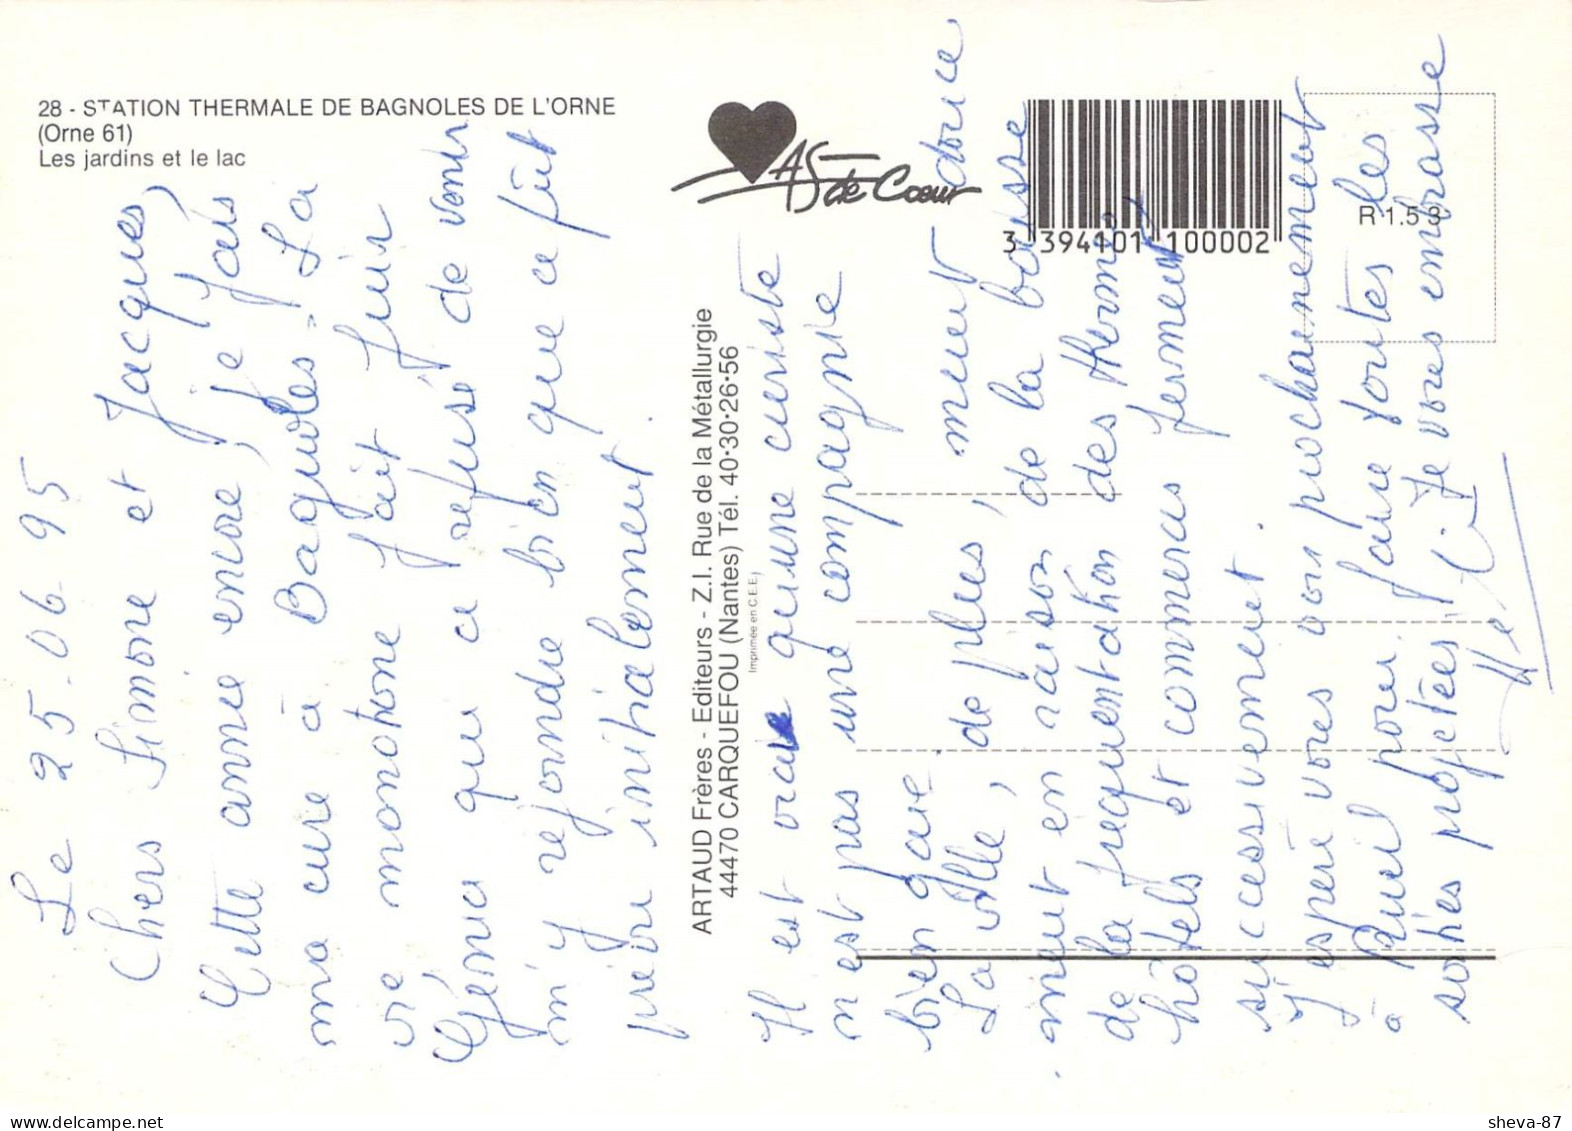 28 - STATION THERMALE DE BAGNOLES DE L'ORNE
(Orne 61)
Les jardins et le lac
As de Coeur
3 394101 100002
R 1.5 3
ARTAUD Frères - Editeurs - Z.I. Rue de la Métallurgie
44470 CARQUEFOU (Nantes) Tél. 40·30·26·56
Imprimée en C.E.E.
Le 25-06-95
Chers Simone et Jacques,
Cette année encore, je fais
ma cure à Bagnoles. La
vie monotone fait fuir
qui a refusé de venir
m'y rejondre bien que ce fût
prévu initialement.
Il est vrai qu'une curiste
n'est pas une compagnie
bien gaie.
La ville, de plus, meurt douce
ment en raison de la baisse
de la fréquentation des thermes
hôtels et commerces ferment
successivement.
J'espère vous voir prochainement
à Rueil pour faire toutes les
sorties projetées. Je vous embrasse
sheva-87